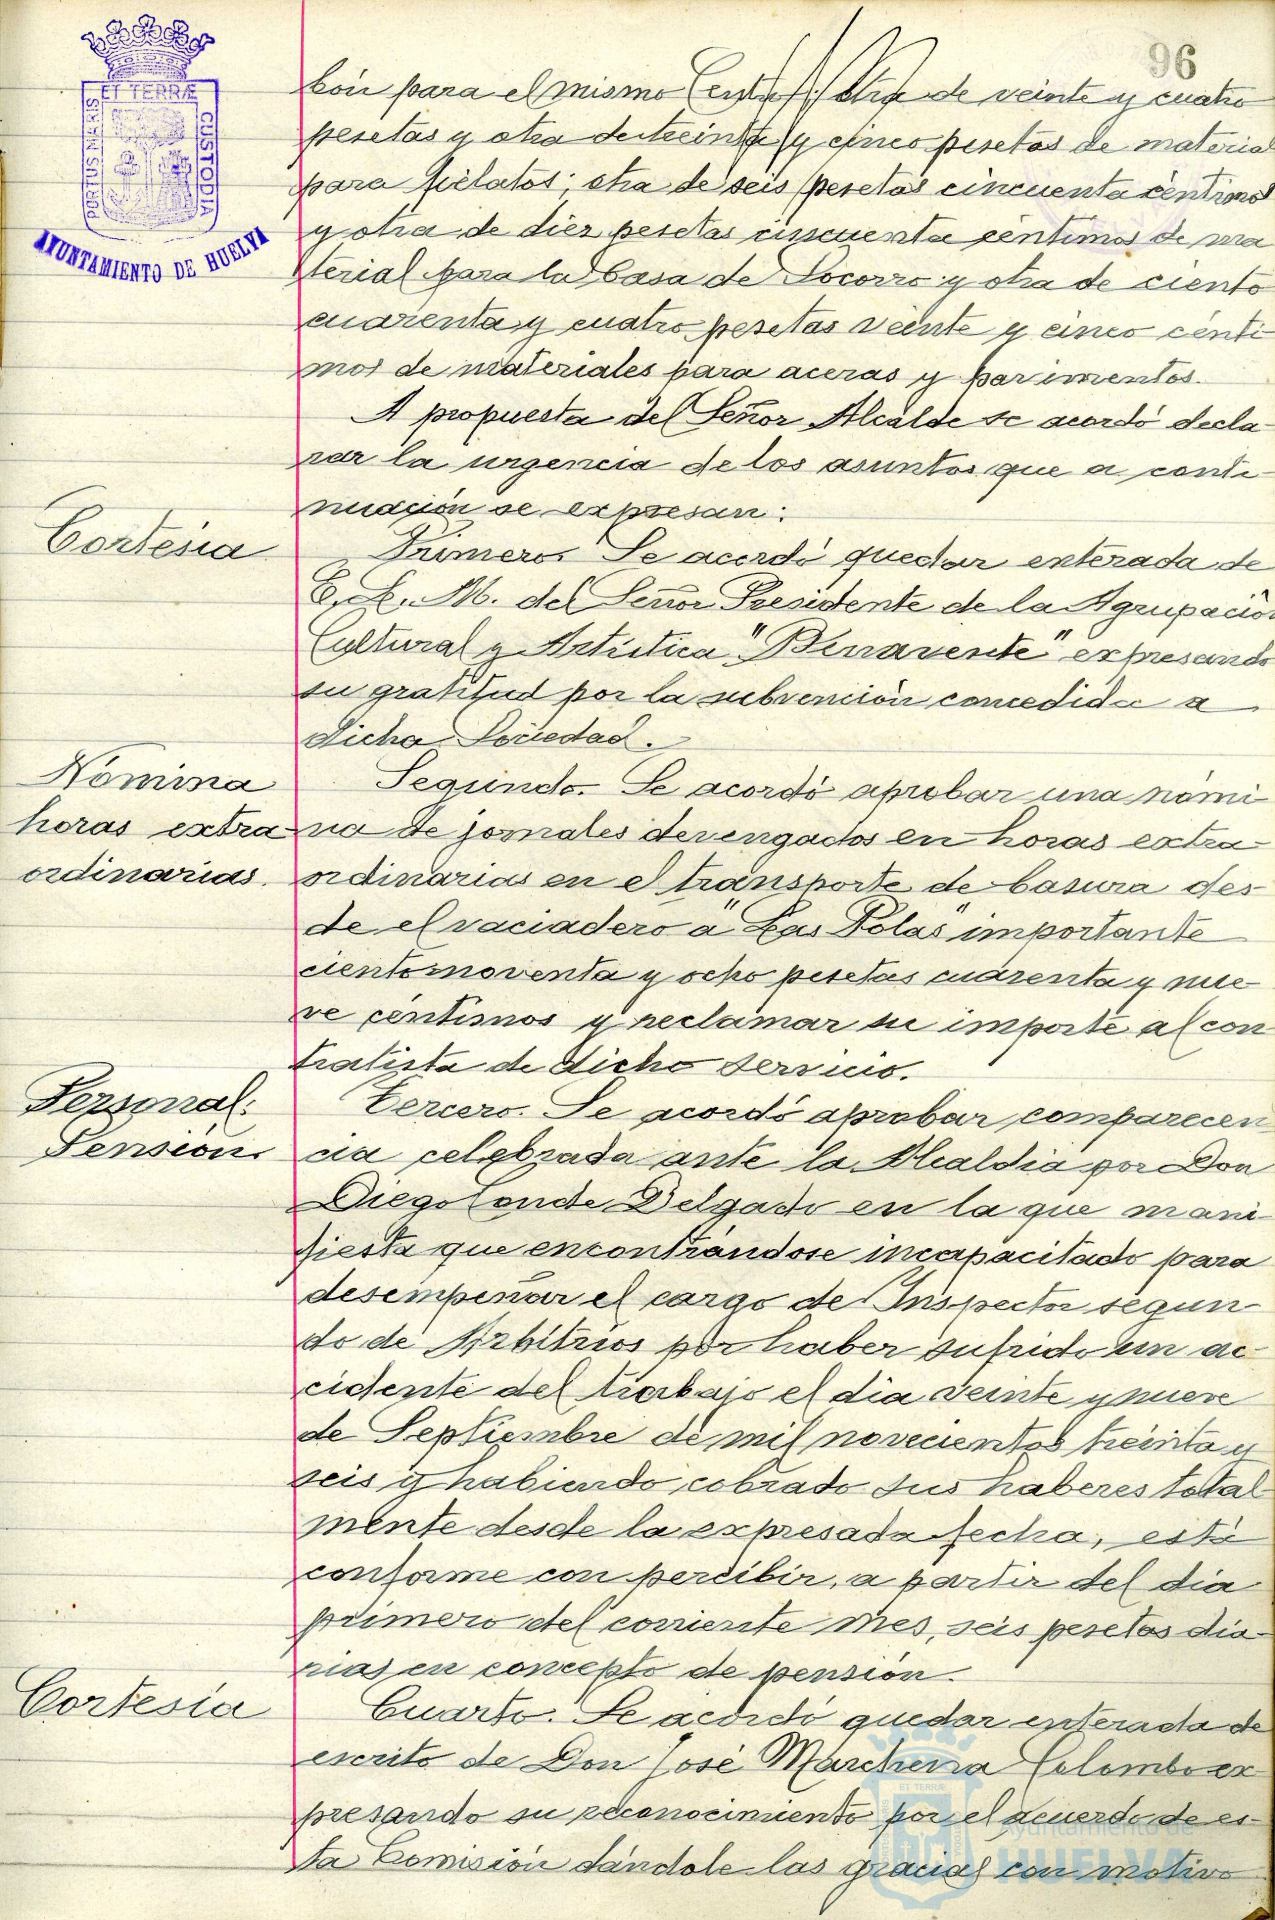 96
ET TERRÆ
PORTUS MARIS
CUSTODIA
AYUNTAMIENTO DE HUELVA
bón para el mismo Centro; otra de veinte y cuatro
pesetas y otra de treinta y cinco pesetas de material
para fielatos; otra de seis pesetas cincuenta centimos
y otra de diez pesetas cincuenta céntimos de ma
terial para la Casa de Socorro y otra de ciento
cuarenta y cuatro pesetas veinte y cinco cénti-
mos de materiales para aceras y pavimentos.
A propuesta del Señor Alcalde se acordó decla-
rar la urgencia de los asuntos que a conti-
nuación se expresan:
Cortesía
Primero. Se acordó quedar enterada de
B. L. M. del Señor Presidente de la Agrupación
Cultural y Artística "Benavente" expresando
su gratitud por la subvención concedida a
dicha Sociedad.
Nómina
horas extra
ordinarias.
Segundo. Se acordó aprobar una nómi-
na de jornales devengados en horas extra-
ordinarias en el transporte de basura des-
de el vaciadero a "Las Polas" importante
ciento noventa y ocho pesetas cuarenta y nue-
ve céntimos y reclamar su importe al con
tratista de dicho servicio.
Personal:
Pensión.
Tercero. Se acordó aprobar comparecen
cia celebrada ante la Alcaldia por Don
Diego Conde Delgado en la que mani-
fiesta que encontrándose incapacitado para
desempeñar el cargo de Inspector segun-
do de Arbitrios por haber sufrido un ac-
cidente del trabajo el dia veinte y nueve
de Septiembre de mil novecientos treinta y
seis y habiendo cobrado sus haberes total
mente desde la expresada fecha, está
conforme con percibir, a partir del dia
primero del corriente mes, seis pesetas dia-
rias en concepto de pensión.
Cortesía
Cuarto. Se acordó quedar enterada de
escrito de Don José Marchena Colombo ex-
presando su reconocimiento por el acuerdo de es-
ta Comisión dándole las gracias con motivo
Ayuntamiento de
HUELVA